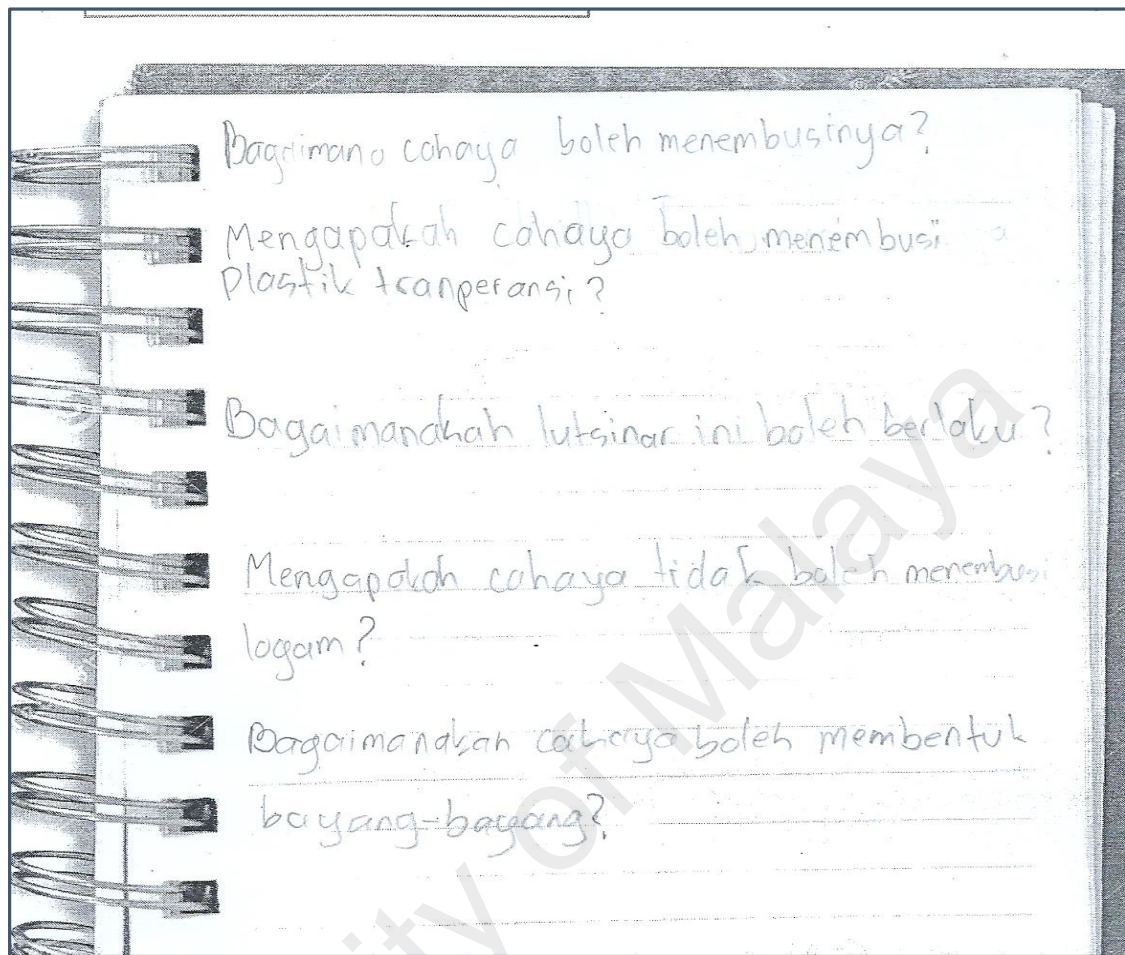 Bagaimana cahaya boleh menembusinya?
Mengapakah cahaya boleh menembusi
plastik tranperansi?
Bagaimanakah lutsinar ini boleh berlaku?
Mengapakah cahaya tidak boleh menembusi
logam?
Bagaimanakah cahaya boleh membentuk
bayang-bayang?
ity of Malaya